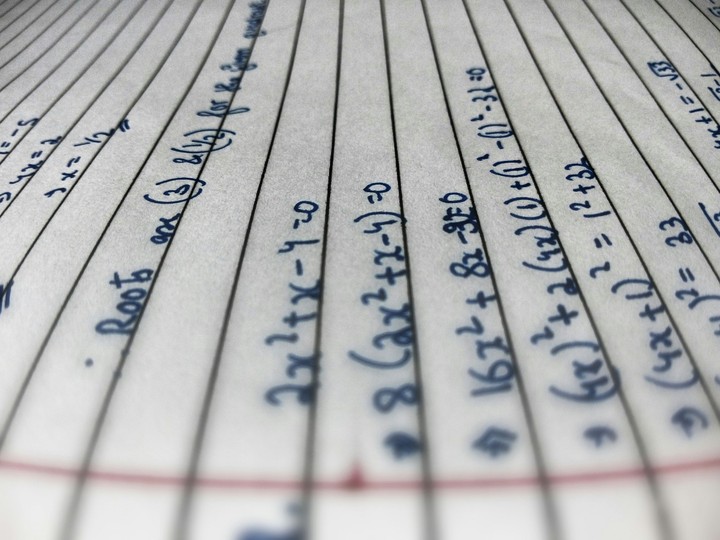 4x = 2
x = 1/2
• Roots are (3) & (1/2) for the
2x² + x - 4 = 0
⇒ 8 (2x² + x - 4) = 0
⇒ 16x² + 8x - 32 = 0
⇒ (4x)² + 2(4x)(1) + (1)² - (1)² - 32 = 0
⇒ (4x + 1)² = 1² + 32
⇒ (4x + 1)² = 33
4x + 1 = -√33